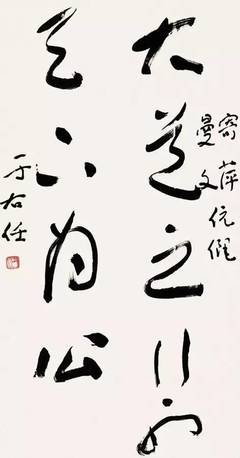 大道之行也
寄萍
曼文
伉儷
天下為公
于右任